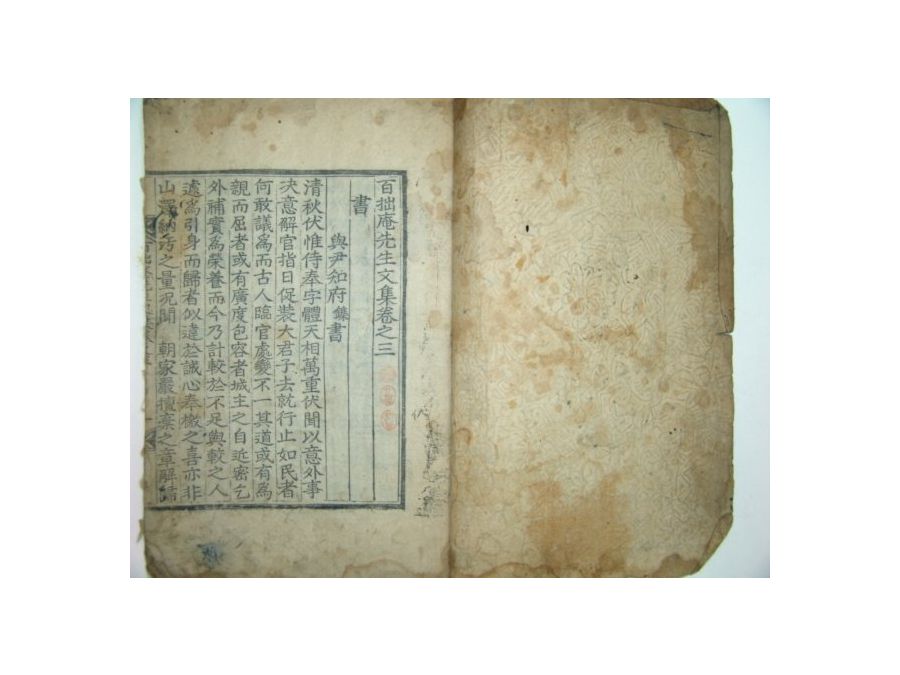 百拙庵先生文集卷之三
書
與尹知府鏶書
清秋伏惟侍奉字體天相萬重伏聞以意外事
决意解官指日促裝大君子去就行止如民者
何敢議爲而古人臨官處變不一其道或有爲
親而屈者或有廣度包容者城主之自近密乞
外補實爲榮養而今乃計較於不足與較之人
遽爲引身而歸者似違於誠心奉檄之喜亦非
山澤納汚之量况聞 朝家嚴擅棄之章解
伏